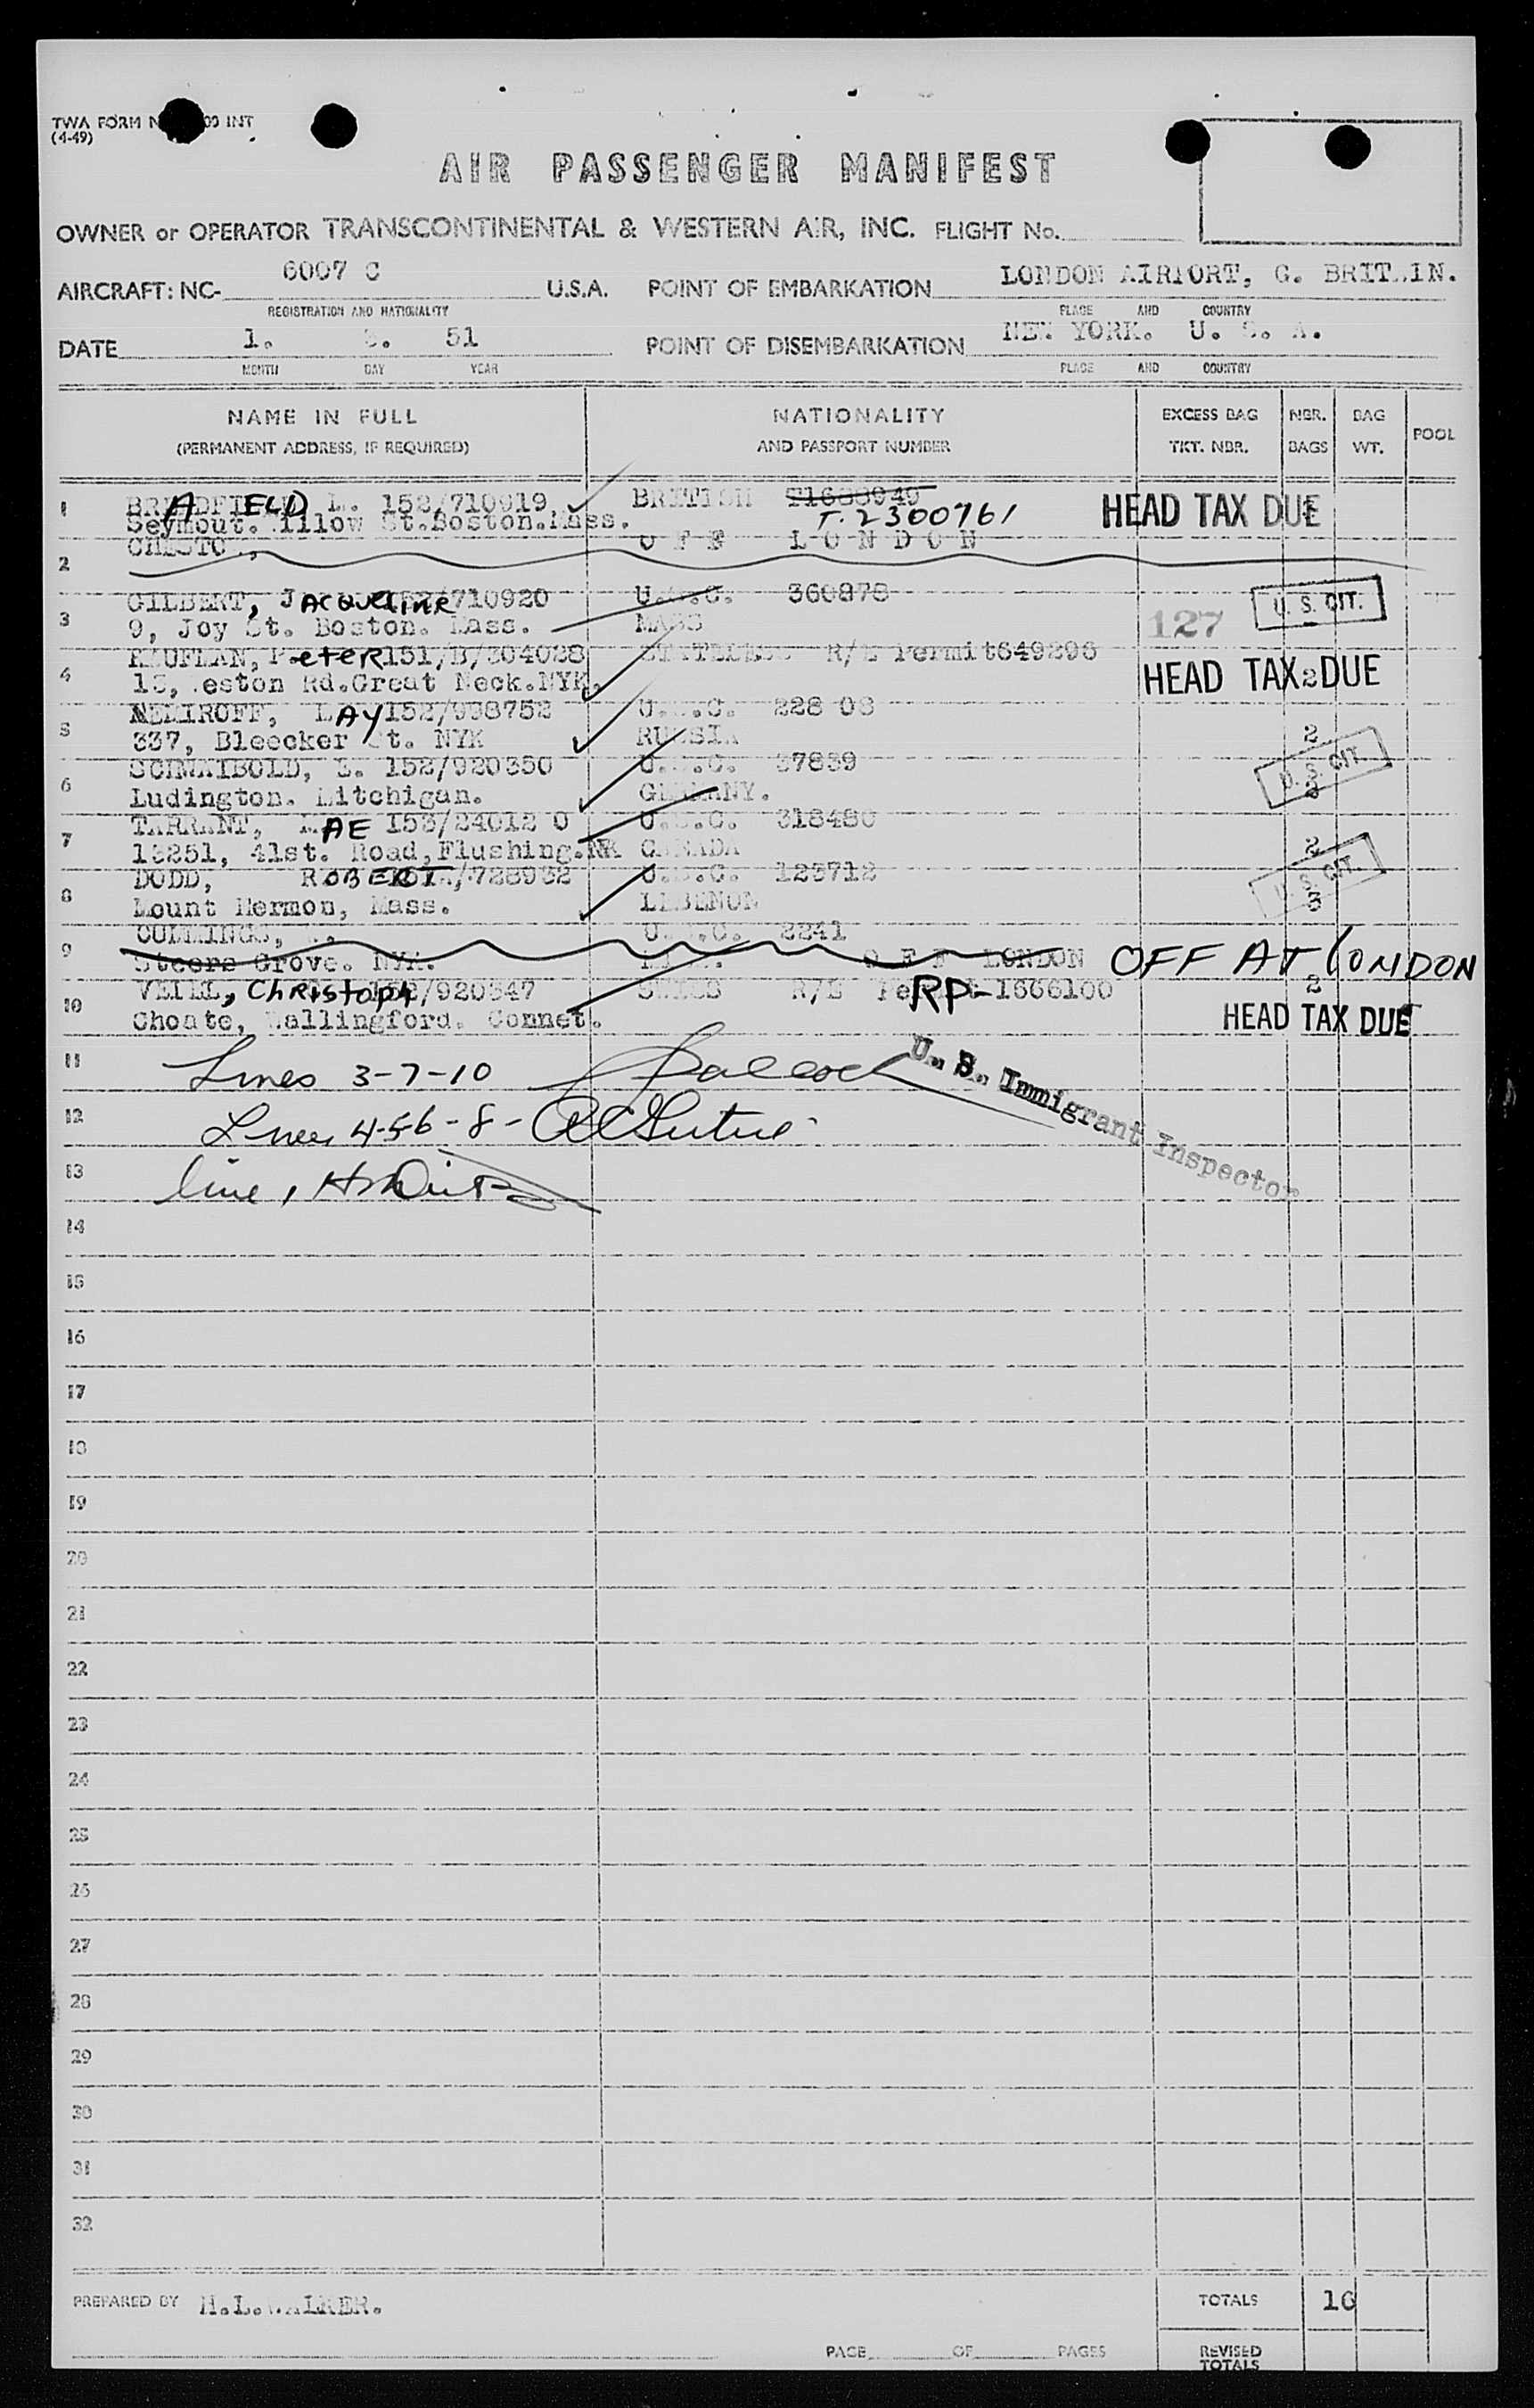 TWA FORM 00 INT
(4-49)
AIR PASSENGER MANIFEST
OWNER or OPERATOR TRANSCONTINENTAL & WESTERN AIR, INC. FLIGHT No.
AIRCRAFT: NC- 6007 C U.S.A. POINT OF EMBARKATION LONDON AIRPORT, G. BRITAIN.
REGISTRATION AND NATIONALITY PLACE AND COUNTRY
DATE 1. 51 POINT OF DISEMBARKATION NEW YORK. U. S. A.
MONTH DAY YEAR PLACE AND COUNTRY
NAME IN FULL NATIONALITY EXCESS BAG NBR. BAG POOL
(PERMANENT ADDRESS, IF REQUIRED) AND PASSPORT NUMBER TKT. NBR. BAGS WT.
1 BRADFIELD L. 152/710919 BRITISH T1688940 HEAD TAX DUE
Seymout. Willow St. Boston. Mass. T. 2300761
2 O F F L O N D O N
3 GILBERT, JACQUELINE 152/710920 U.S.C. 360878 U. S. CIT.
9, Joy St. Boston. Mass. MASS 127
4 KAUFMAN, Peter 151/B/304028 STATELESS R/E Permit 649296
13, Weston Rd. Great Neck. NYK. HEAD TAX DUE 2
5 NEMIROFF, LAY 152/938752 U.S.C. 228 08
337, Bleecker St. NYK RUSSIA 2
6 SCHWAIBOLD, E. 152/920350 U.S.C. 37839 U. S. CIT.
Ludington. Mitchigan. GERMANY.
7 TARRANT, MAE 153/24012 0 U.S.C. 318480
13251, 41st. Road, Flushing. NYK CANADA 2
8 DODD, ROBERT /728932 U.S.C. 123712 U. S. CIT.
Mount Hermon, Mass. LEBENON 3
9 CULLINGS, U.S.C. 2241
Steers Grove. NYK. O F F LONDON OFF AT LONDON
10 VEIEL, Christoph 152/920347 SWISS R/E Permit RP-1666100 2
Choate, Wallingford. Connet. HEAD TAX DUE
11 Lines 3-7-10
U. S. Immigrant Inspector
12 Lines 4-5 6-8-
13 line 1
14
15
16
17
18
19
20
21
22
23
24
25
26
27
28
29
30
31
32
PREPARED BY H.L.WALKER. TOTALS 16
PAGE OF PAGES REVISED
TOTALS